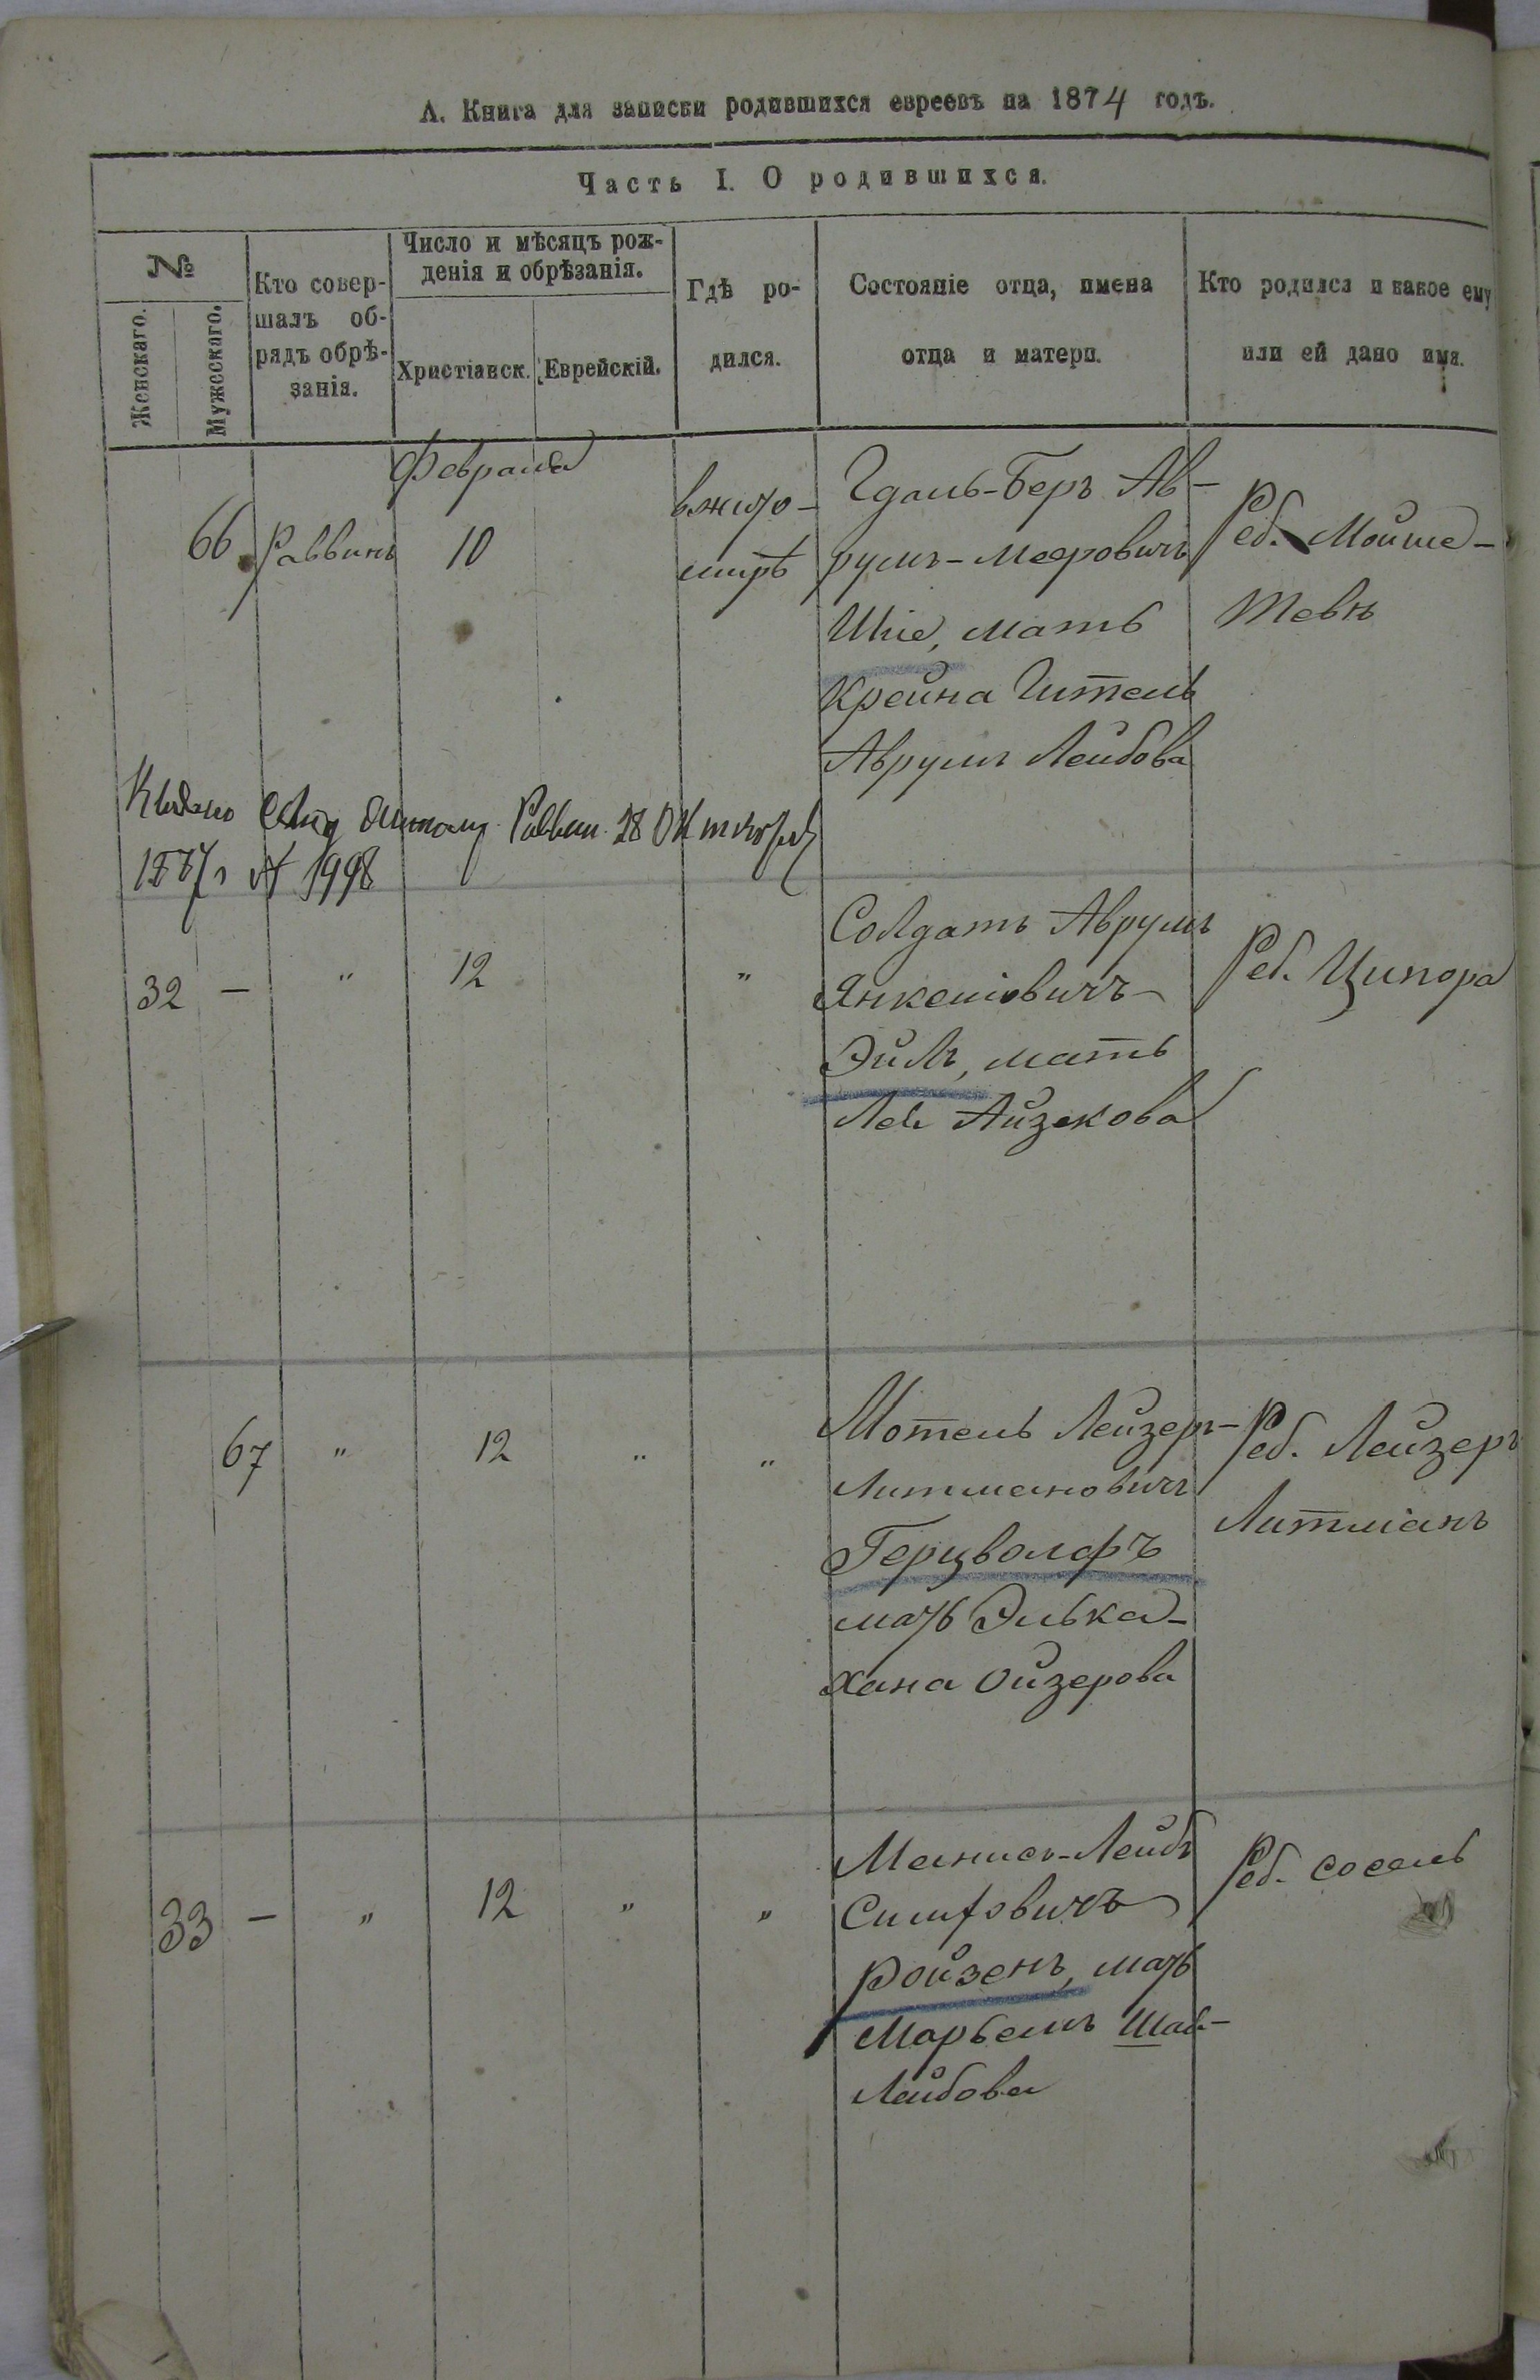 А. Книга для записки родившихся евреевъ на 1874 годъ.
Часть I. О родившихся.
№
Женскаго.
Мужескаго.
Кто совер-
шалъ об-
рядъ обрѣ-
занія.
Число и мѣсяцъ рож-
денія и обрѣзанія.
Христіанск.
Еврейскій.
Гдѣ ро-
дился.
Состояніе отца, имена
отца и матери.
Кто родился и какое ему
или ей дано имя.
Февраля
66
Раввинъ
10
вжито-
мирѣ
Гдаль-Беръ Ав-
румъ-Мееровичъ
мать
Крейна Гитель
Аврумъ Лейбова
Реб. Мойше-
Тевя
Раввин. 28 Октября
№ 1998
32 — " 12 "
Солдатъ Аврумъ
Янкеліовичъ
Эйлъ, мать
Лея Айзекова
Реб. Ципора
67 " 12 " "
Мотель Лейзеръ-
Литмановичъ
Герцволфъ
мать Элька-
Хана Ойзерова
Реб. Лейзеръ
Литманъ
33 — " 12 " "
Манисъ-Лейбъ
Симховичъ
Ройзенъ, мать
Марьемъ Шая-
Лейбова
Реб. Сосель